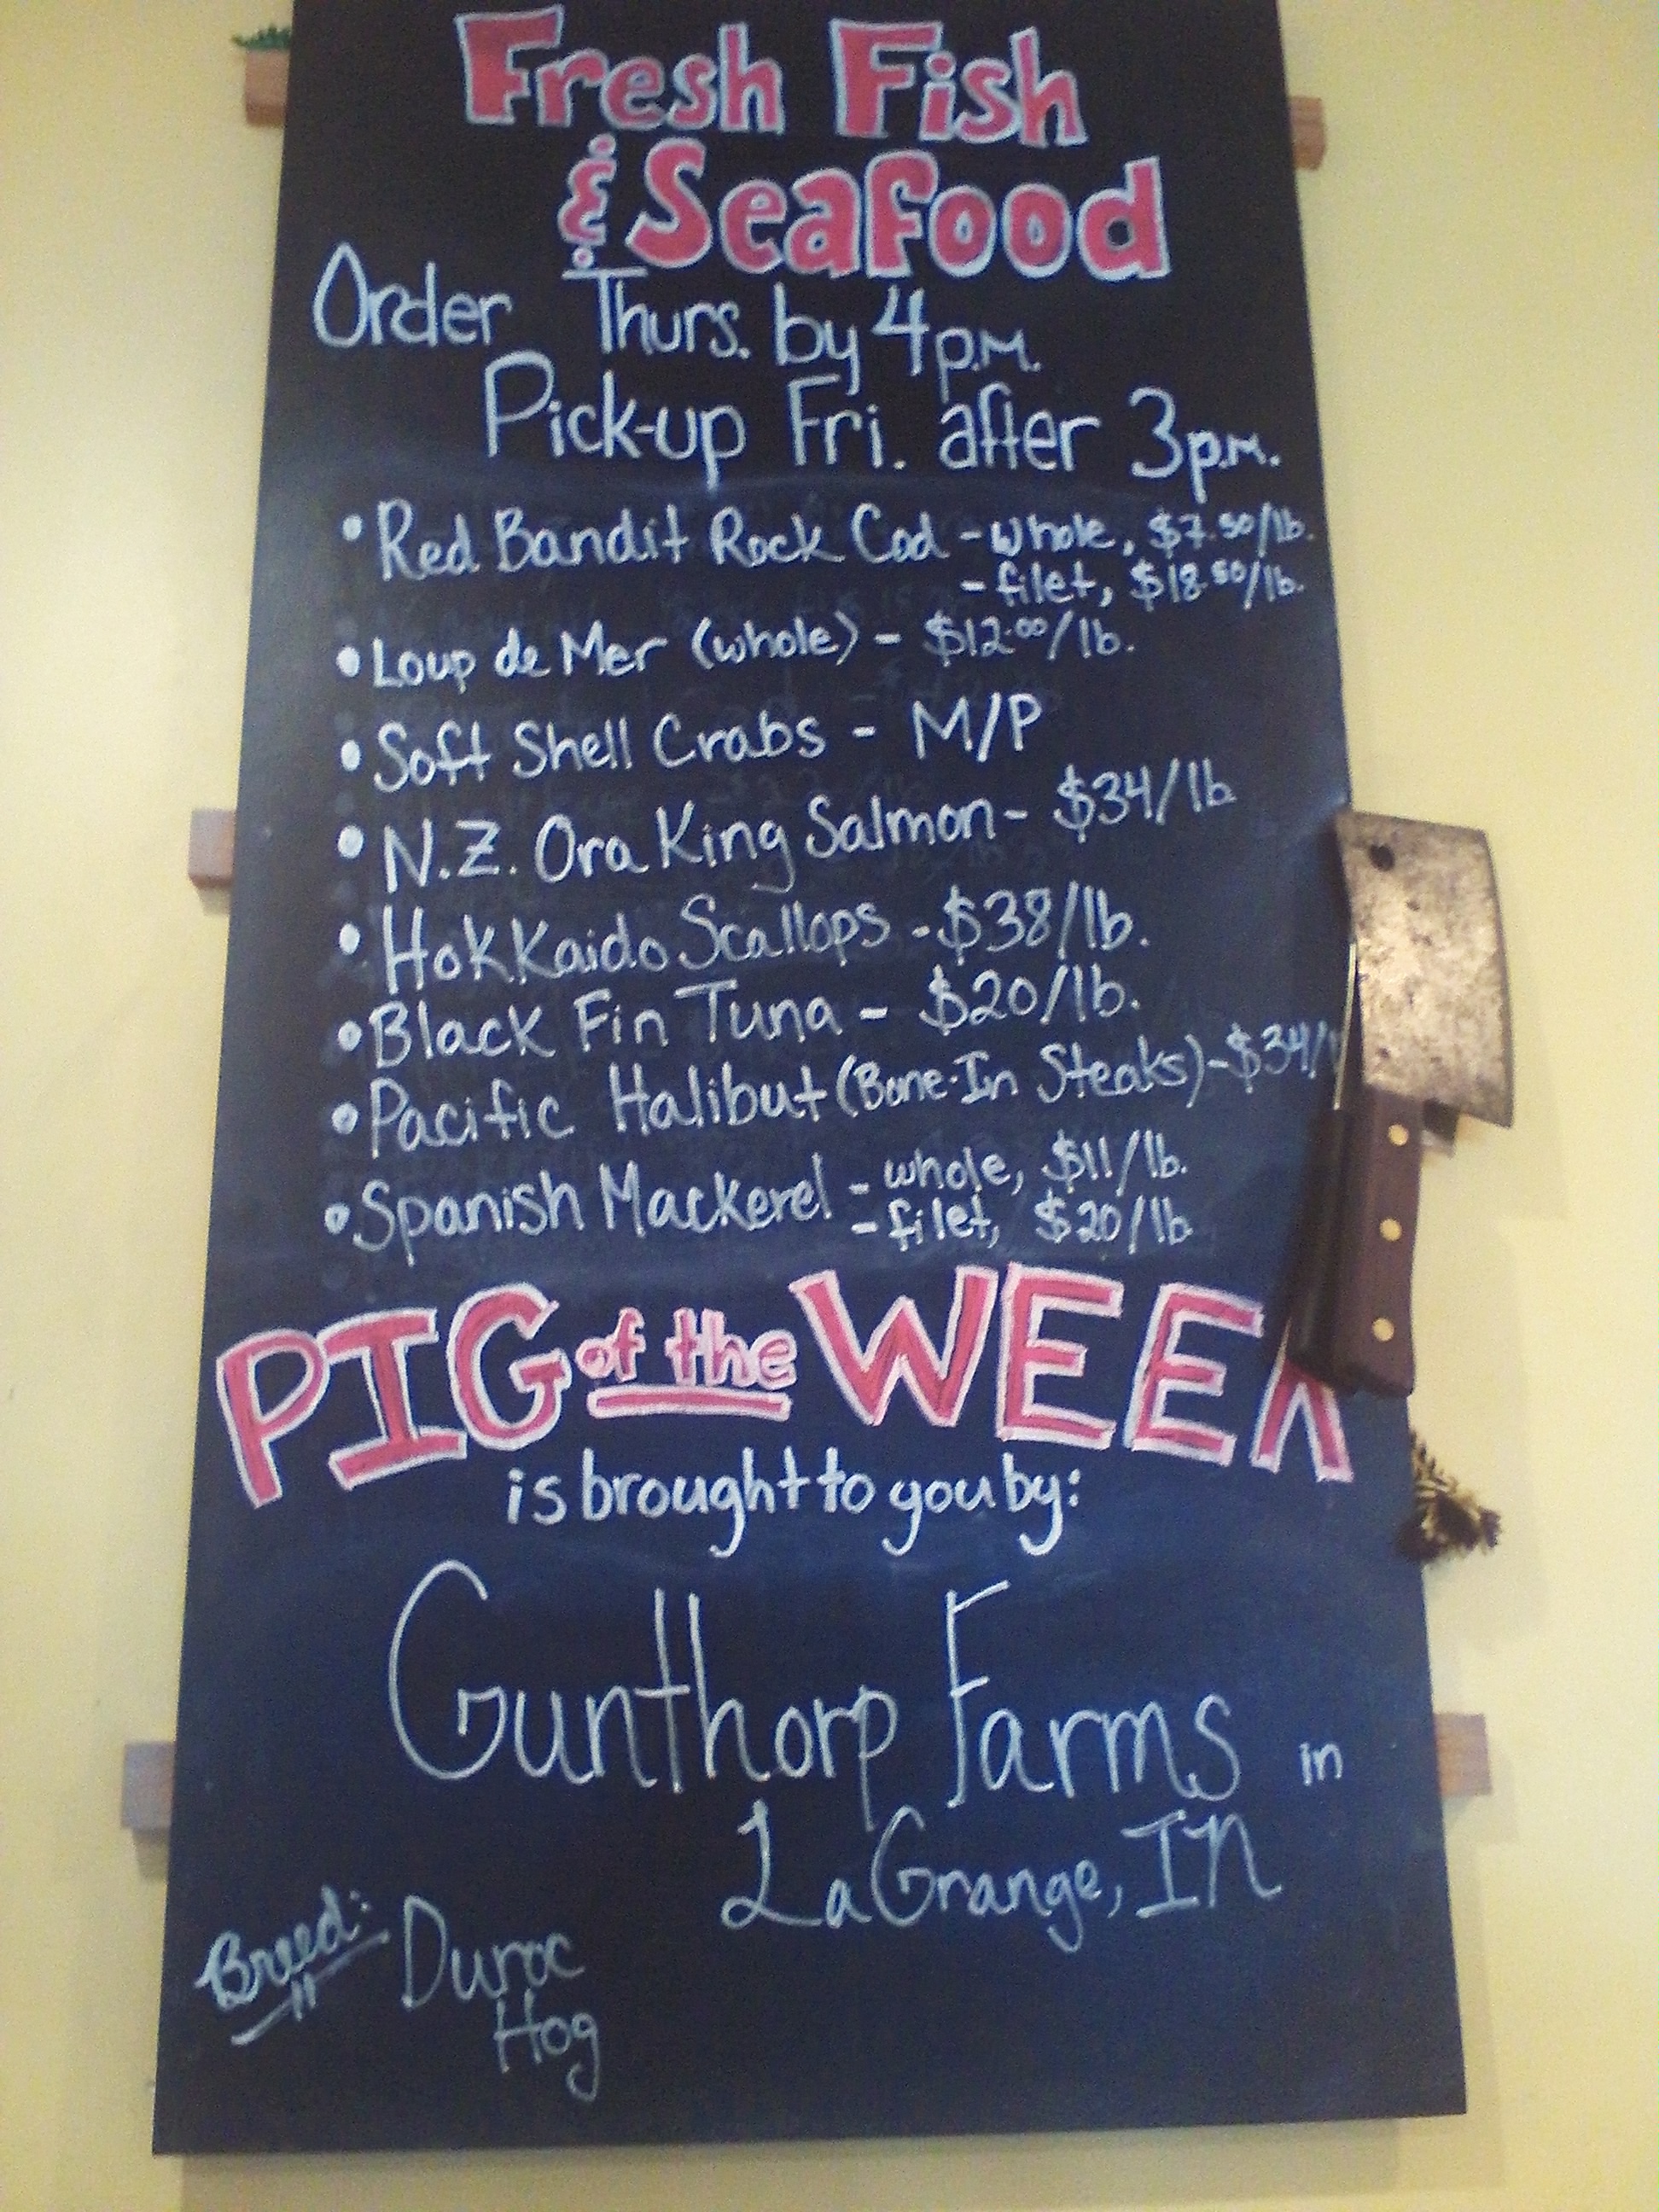 Fresh Fish
& Seafood
Order Thurs. by 4p.m.
Pick-up Fri. after 3p.m.
• Red Bandit Rock Cod - whole, $7.50/lb.
- filet, $18.50/lb.
• Loup de Mer (whole) - $12.00/lb.
• Soft Shell Crabs - M/P
• N.Z. Ora King Salmon - $34/lb
• Hokkaido Scallops - $38/lb.
• Black Fin Tuna - $20/lb.
• Pacific Halibut (Bone-In Steaks) - $34/
• Spanish Mackerel - whole, $11/lb.
- filet, $20/lb
PIG of the WEEK
is brought to you by:
Gunthorp Farms in
LaGrange, IN
Breed: Duroc
Hog